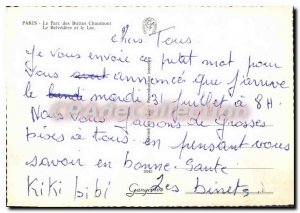 PARIS - Le Parc des Buttes Chaumont
Le Belvédère et le Lac.
Chers Tous
Je vous envoie ce petit mot pour
vous annoncer que j'arrive
le lundi mardi 31 juillet à 8H.
Nous vous faisons de grosses
bises à tous. en pensant vous
savoir en bonne Santé.
Kiki bibi